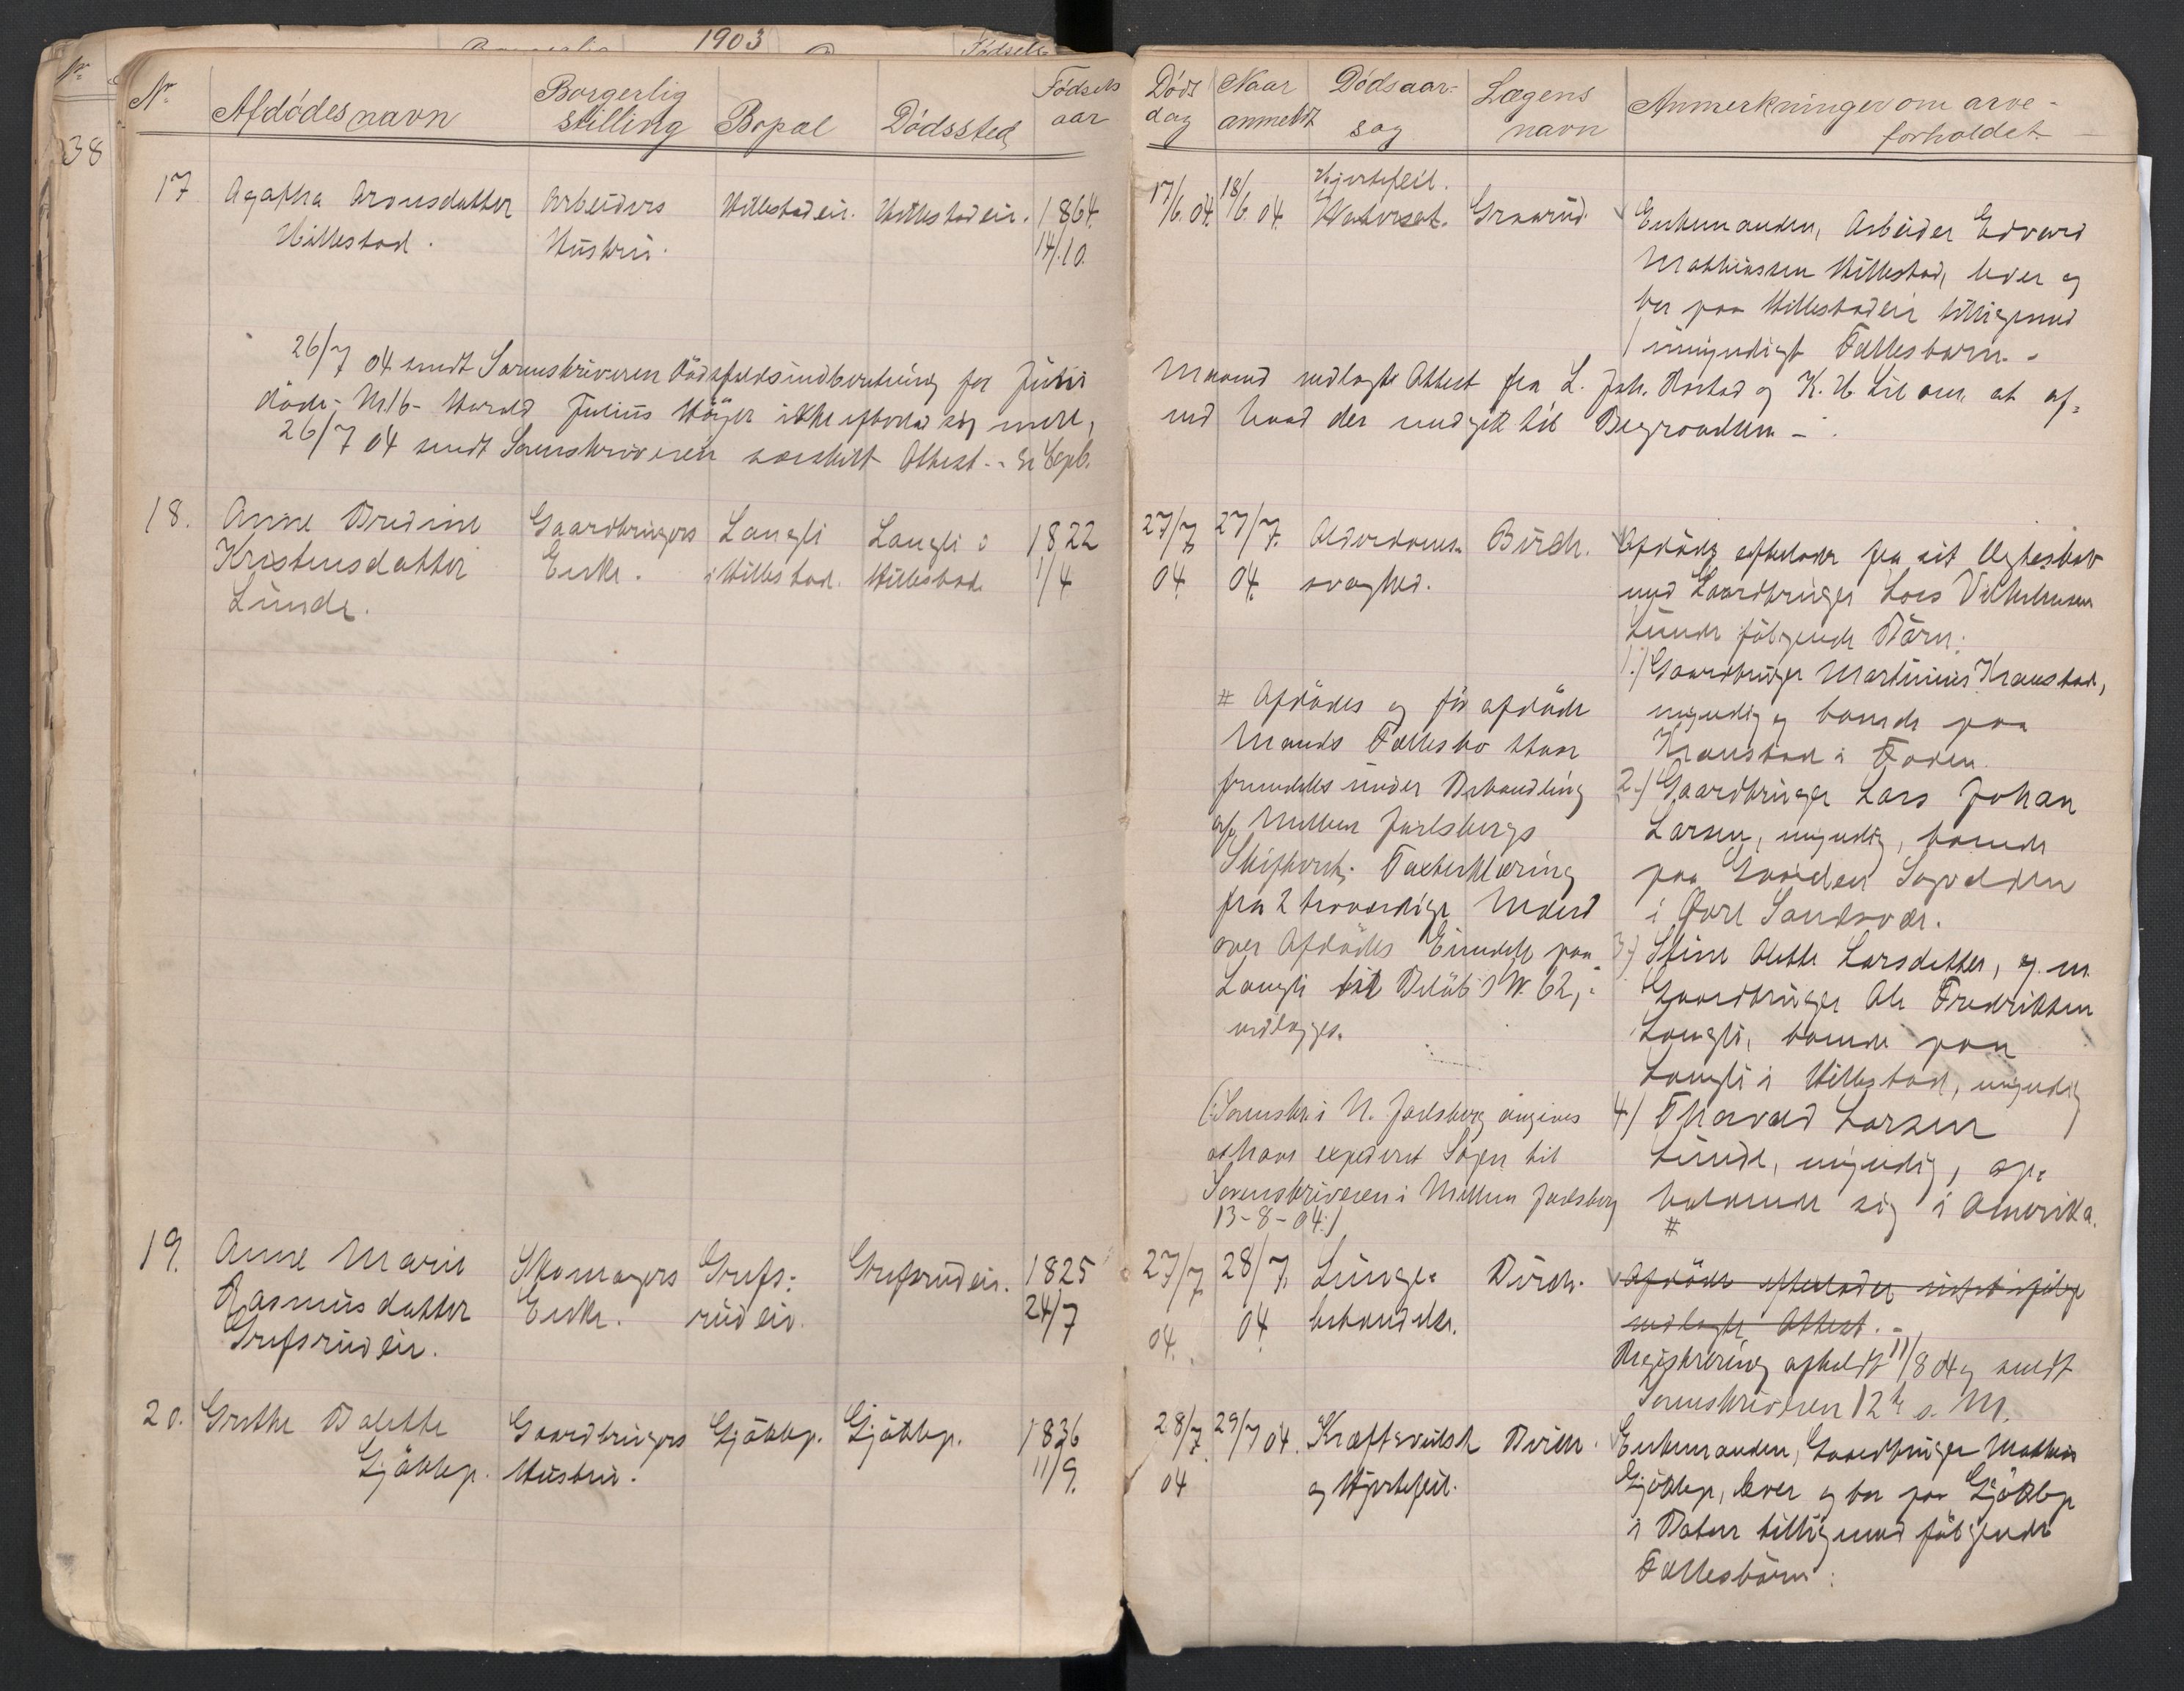 1903
38
Nr. Afdødes navn Borgerlig stilling Bopæl Dødssted Fødsels aar
Døds dag Naar anmeldt Dødsaarsag Lægens navn Anmerkninger om arveforholdet
17 Agathe Hillestad.
Arbeiders Hustru.
Hillestadeie. Hillestadeie. 1864. 14/10.
17/6 04. 18/6 04. Hjertefeil. Graarud.
Enkemanden, Arbeider Edvard
Mathiassen Hillestad, lever og
bor paa Hillestadeie tilligemed
1 umyndigt Fællesbarn. -
26/7 04 sendt Sorenskriveren Dødsfaldsindberetning for Juni
Maaned vedlagt Attest fra L. Joh. Rostad og K. H. Lie om, at af-
døde Nr. 16 - Harald Julius ikke efterlod sig mere,
end hvad der medgik til Begravelsen -.
26/7 04 sendt Sorenskriveren særskilt Attest
18. Anne Bredine
Kristensdatter
Lunde.
Gaardbrugers Enke.
Langli i Hillestad.
Langli i Hillestad
1822 1/4
27/7 04. 27/7. 04. Alderdoms-
svaghed.
Birch.
Afdøde efterlader fra sit Ægteskab
med Gaardbruger Lars Vilhelmsen
Lunde følgende Børn:
1.) Gaardbruger Martinius Kraustad,
myndig og boende paa
Kraustad i Foden.
2.) Gaardbruger Lars Johan
Larsen, myndig, boende
paa Gaarden
i Øvre Sandsvær.
3.) Stine Alette Larsdatter, g. m.
Gaardbruger Ole Fredriksen
Langli, boende paa
Langli i Hillestad, myndig
4) Thorvald Larsen
Lunde, myndig, op-
holdende sig i Amerika.
#
# Afdødes og før afdøde
Mands Fællesbo skal
fremdeles under Behandling
af Mellem Jarlsbergs
Skifteret. Taxterklæring
fra 2 troværdige Mænd
over Afdødes Eiendele paa
Langli til Beløb Kr. 62,-
vedlægges.
(Sorenskr. i N. Jarlsberg angives
at have expederet Sagen til
Sorenskriveren i Mellem Jarlsberg
13-8-04.)
19. Anne Marie
Rasmusdatter
Grefsrudeie.
Skomagers Enke.
Grefs-
rudeie.
Grefsrudeie.
1825 24/7
27/7 04. 28/7. 04. Lunge-
betændelse.
Birch.
Afdøde efterlader intet ifølge
vedlagte Attest. -
Registrering afholdt 11/8 04 og sendt
Sorenskriveren 12te s. M.
20. Grethe Bolette
Gjøklep.
Gaardbrugers Hustru.
Gjøklep. Gjøklep. 1836 11/9.
28/7. 04 29/7 04. Kræftsvulst
og Hjertefeil.
Birch.
Enkemanden, Gaardbruger Mathias
Gjøklep, lever og bor paa Gjøklep
i Botne tilligemed følgende
Fællesbørn: